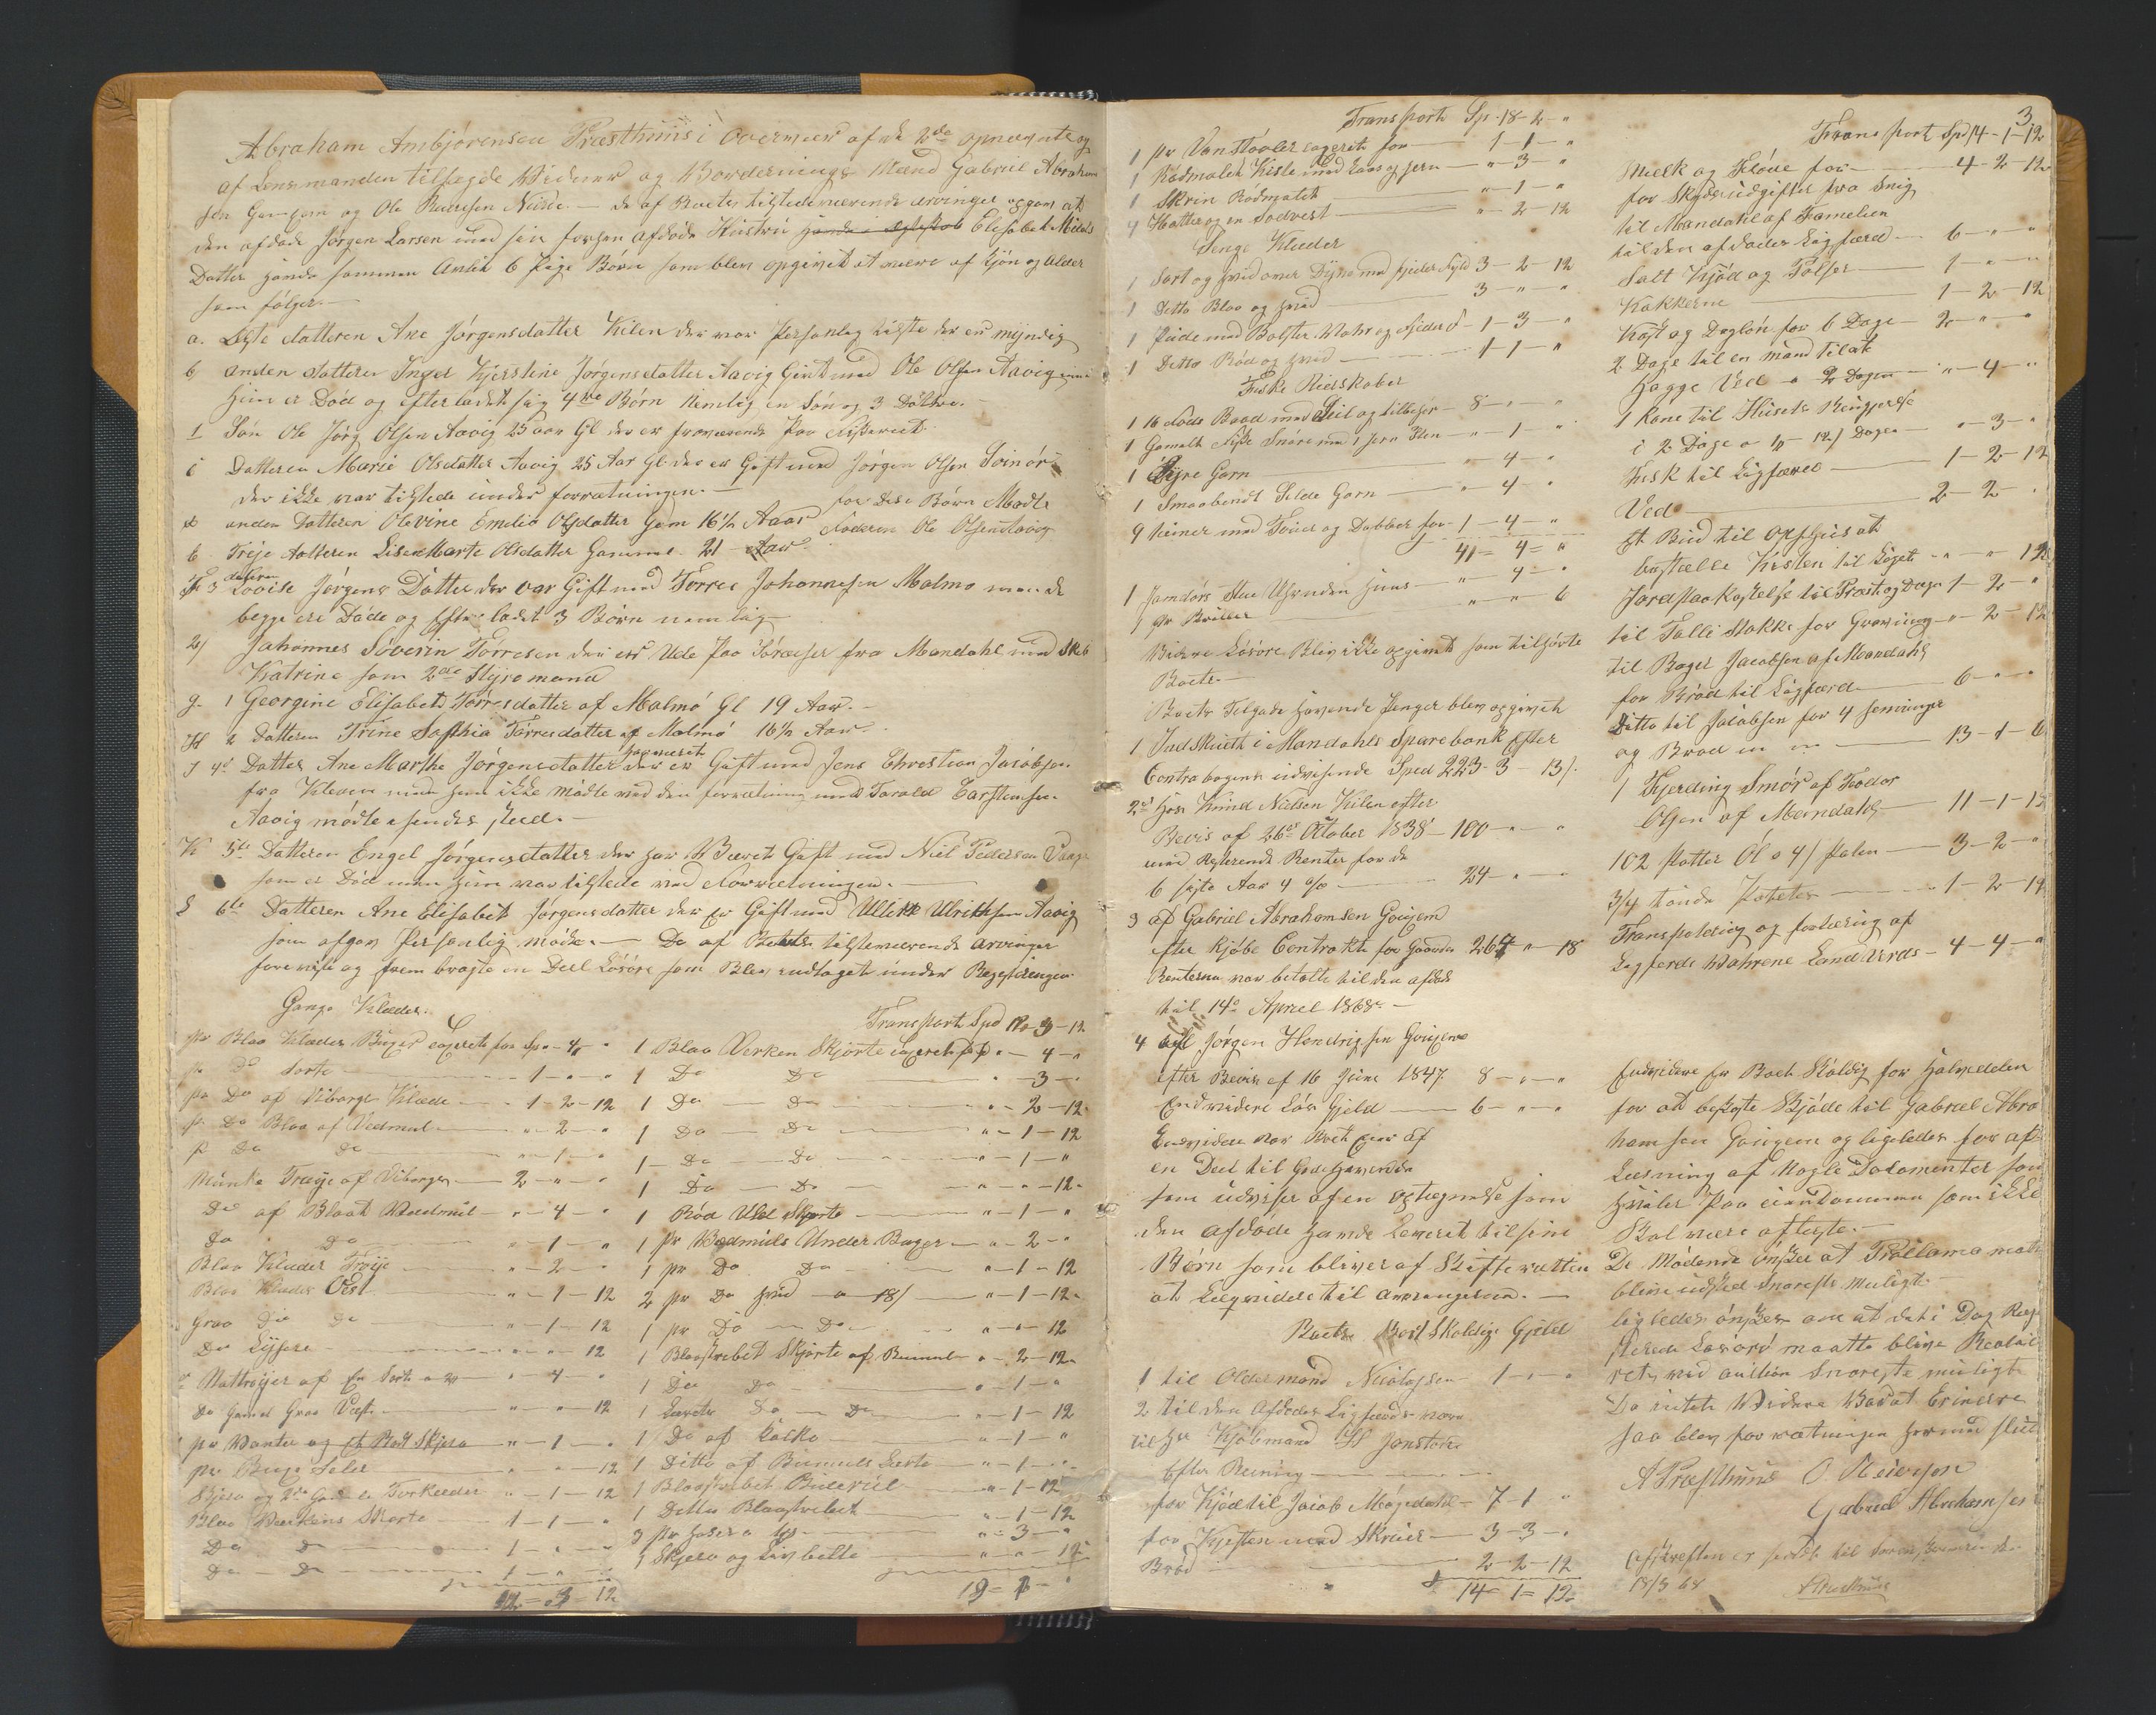 Abraham Ambjörensen Præsthuus i Overvær af de 2de opnævnte og
af Lensmanden tilsagde Widner og Worderings Mænd Gabriel Abraham
sen Gougem og Ole Reiersen Neise. — de af Boets tilstedeværende arvinger opgav at
den afdöde Jörgen Larsen med sin forhen afdöde Hustru Elisabet Nikels
Datter havde sammen Avlet 6 Pige Börn som blev opgivet at være af Kjön og Alder
som fölger. —
a. Elste datteren Ane Jörgensdatter Kilen der var Personlig tilste der er myndig
b anden datteren Inger Kjerstine Jörgensdatter Aavig Givt med Ole Olsen Aavig men
Hun er Död og efterladet sig 4re Börn Nemlig en Sön og 3 Döttre. —
1 Sön Ole Jörg Olsen Aavig 25 aar Gl der er fraværende paa Fiskeriet
i Datteren Marie Olsdatter Aavig 25 Aar Gl. der er Gift med Jörgen Olsen Svinör
der ikke var tilstede under forretningen. —
anden Datteren Olevine Emilie Olsdatter Gam 16½ Aaar
for disse Börn Mödte
Faderen Ole Olsen Aavig
Treje datteren Lisen Marte Olsdatter Gammel 21 Aar
3 datteren Lovise Jörgens Datter der var Gift med Torres Johannesen Malmö men de
begge ere Döde og Efterladet 3 Börn nemlig
Johannes Söverin Torresen der er Ude paa Söreiser fra Mandahl med Skib
Katrine som 2den Styremand
g. 1 Georgine Elisabet Torresdatter af Malmö Gl 19 Aar. —
H 2 datteren Trine Softhia Torresdatter af Malmö 16½ Aar.
J 4de Datter Ane Marthe Jörgensdatter der er Gift med Jens Christian Jacobsen
fra Kleven men hun ikke mödte ved den forretning med Tarald Tarstensen
Aavig mödte i hendes sted. —
K 5te Datteren Engel Jörgensdatter der har Været Gift med Niel Pedersen Vaage
som er Död men Hun var tilstede ved Forretningen. —
6te Datteren Ane Elisabet Jörgensdatter der er Gift med Ullrik Ulriksen Aavig
som afgav Personlig möde. — De af Boets tilsteværende arvinger
foreviste og frem bragte en Deel Lösöre som Blev indtaget under Regestreringen
Gange Klæder.
pr Blaa Klædes Buxer Taxeret for Sp - 4 - "
pr Do Sorte — 1 - " - "
pr Do af Viborgs Klæde — 1 - 2 - 12
pr Do Blaa af Vadmel — " - 2 - "
p Do Do — " - 1 - "
Munke Trøije af Viborgs — 2 - " - "
Do af Blaat Wadmel — " - 4 - "
Do Do — " - 1 - "
Blaa Klædes Tröije — " - 2 - "
Blaa Klædes Vest — " - 1 - 12
Graa Do Do — " - 1 - 12
Do Lysere — " - " - 12
Nattröijer af — " - 4 - "
Do Gamel Graa Vest — " - " - 12
pr Vanter og — " - 1 - "
pr Buxe Seler — " - " - 12
Skjera og — " - 1 - 12
Blaa Verkens Skjorte — 1 - 1 - "
Do Do — 1 - " - "
Do — Do — 1 - " - "
12 = 3 = 12
Transport Spd 12 - 3 - 12
1 Blaa Verken Skjorte Taxeret for " - 4 - "
1 Do Do " - 3 - "
1 Do — Do " - 2 - 12
1 Do — Do " - 1 - 12
1 — Do — Do " - 1 - "
1 Do — Do " - " - 12
1 Röd Uld Skjorte " - 1 - "
1 pr Wadmels Under Buxer " - 2 - "
1 pr Do Do " - 1 - 12
2 pr Do hvid a 18/ " - 1 - 12
1 pr Do — Do " - " - 12
1 Blaastribet Skjorte af Bumuld " - 2 - 12
1 Do Do " - 1 - "
1 Lærets Do — Do " - 1 - 12
1 Do af " - 1 - "
1 Ditto af Bumulds Lærets " - 1 - "
1 Blaastribet " - 1 - 12
1 Ditto Blaastribet " - 1 - 12
3 pr Hoser " - 3 - "
1 Skjera og Liv belte " - " - 12
Transport Sp - 18 - 2 - "
1 pr Vanstövler taxeret for 1 - 1 - "
1 Rödmalet Kiste med Laas og jern " - 3 - "
1 Skrin Rödmalet " - 1 - "
4 Hatter og en Sodvest " - 2 - 12
Senge Klæder
1 Sort og hvid over Dÿne med Fjeder Fyld 3 - 2 - 12
1 Ditto Blaa og hvid 3 - " - "
1 Pude med Bolster Wahr og Fjeder 1 - 3 - "
1 Ditto Röd og hvid 1 - 1 - "
Fiske Redskaber
1 16 Fods Baad med Seil og tilbehör 8 - " - "
1 Gamelt Fiske Snöre med 1 Jern Sten " - 1 - "
1 Lÿre Garn " - 4 - "
1 Smaabundt Silde Garn " - 4 - "
9 Teiner med Touer og Dubber for 1 - 4 - "
41 = 4 = "
1 Jamdörs Stue Uhr uden Huus " - 4 - "
1 pr Briller " - " - 6
Videre Lösöre Blev ikke opgivet som tilhörte
Boet. —
Boets Tilgode Havende Penger blev opgivet
1 Indskudt i Mandahls Sparebank Efter
Contrabogens udvisende Spd 223 - 3 - 13/.
2de Hos Knud Nielsen Kilen efter
Bevis af 26de October 1838 - 100 - " - "
med Resterende Renter for de
6 siste Aar 4 % 24 - " - "
3 af Gabriel Abrahamsen Goujem
efter Kjöbe Contrakt for Gaarden 264 " - 18
Renterna var betalte til den afdöde
til 14de April 1868. —
4 af Jörgen Hendriksen Goujem
efter Bevis af 16 Juni 1847. 8 - " - "
Endvidere Lös Gjeld — 6 - " - "
Endvidere har Boet Ejer af
en Deel til Godehavende
som udviser af en optegnelse som
den afdöde havde Leveret til sine
Börn som bliver af Skifteretten
at Leqvidere til arvingerne. —
Boets Bort Skoldige Gjeld
1 til Oldermand Nicolajsen 1 - " - "
2 til den Afdödes Ligfærds
til Hr Kjöbmand H Jonstorn
Efter Reining — — —
for Kjöd til Jacob Möjedahl - 7 - 1 "
for Kjesten med Skruer — 3 - 3 - "
Bröd — 2 - 2 - 12
14 = 1 = 12
3
Transport Spd 14 - 1 - 12
Melk og Flöde for 4 - 2 - 12
for Skydsudgifter fra Snig
til Mandahl af Familien
til den afdödes Ligfærd 6 - " - "
Salt Kjöd og Pölser 1 - " - "
Kokkerne 1 - 2 - 12
Kost og Daglön for 6 Dage 2 - " - "
2 Dage til en mand til at
Hogge Ved " - 4 - "
1 Kone til Husets Rengjörelse
i 2 Dage " - 3 - "
Fisk til Ligfæred 1 - 2 - 12
Ved 2 - 2 - "
Et Bud til
bestælle Kisten til Liget " - " 12
Jordpaakastelse til Præst og Degn 1 - 2 - "
til Talli Stakke for Gravning " - 2 - 12
til Bager Jacobsen af Mandahl
for Bröd til Ligfærd 6 - " - "
Ditto til Jacobsen for 4 semringe
og Bröd 13 - 1 - 6
1 Fjerding Smör af Todor
Olsen af Mandahl 11 - 1 - 12
102 Potter Öl a 4/ Poten 3 - 2 - "
3/4 tönde Poteter 1 - 2 - 12
Transpotering og fortæring af
Ligferds Wahrene Landværds - 4 - 4 - "
Endvidere Er Boet Skoldig for Halvedelen
for at besörge Skjöde til Gabriel Abra
hamsen Goujem og ligeledes for af
Læsning af Nogle Dokomenter som
Hviler paa eiendommen som ikke
Skal være afleste. —
De Mödende önsker at Prollama mate
blive udsted Snareste muligt. —
ligeledes önskes om at det i Dag Rege
sterede Lösöre maatte blive Realise
ret ved auktion Snareste muligt
Da intet Widere Var at Erindre
saa blev forrætningen hermed slut
A Præsthuus O Reierson
Gabriel Abrahamsen
Afskriften er sendt til Sorenskriveren
18/5 68 APræsthuus